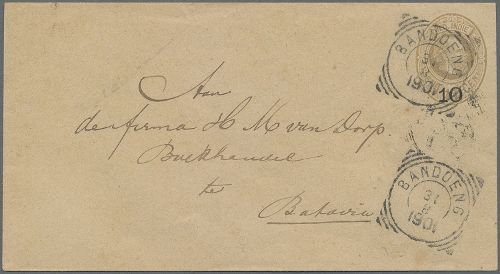 BANDOENG
1901
10
Aan
de firma H M van Dorp.
Boekhandel
te
Batavia
BANDOENG
1901